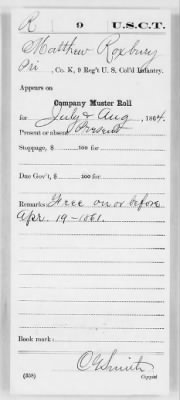 R 9 U.S.C.T.
Matthew Roxbury
Pri, Co. K, 9 Reg't U. S. Col'd Infantry.
Appears on
Company Muster Roll
for July & Aug, 1864.
Present or absent Present
Stoppage, $ 100 for
Due Gov't, $ 100 for
Remarks: Free on or before
Apr. 19-1861.
Book mark:
C G Smith
(358) Copyist